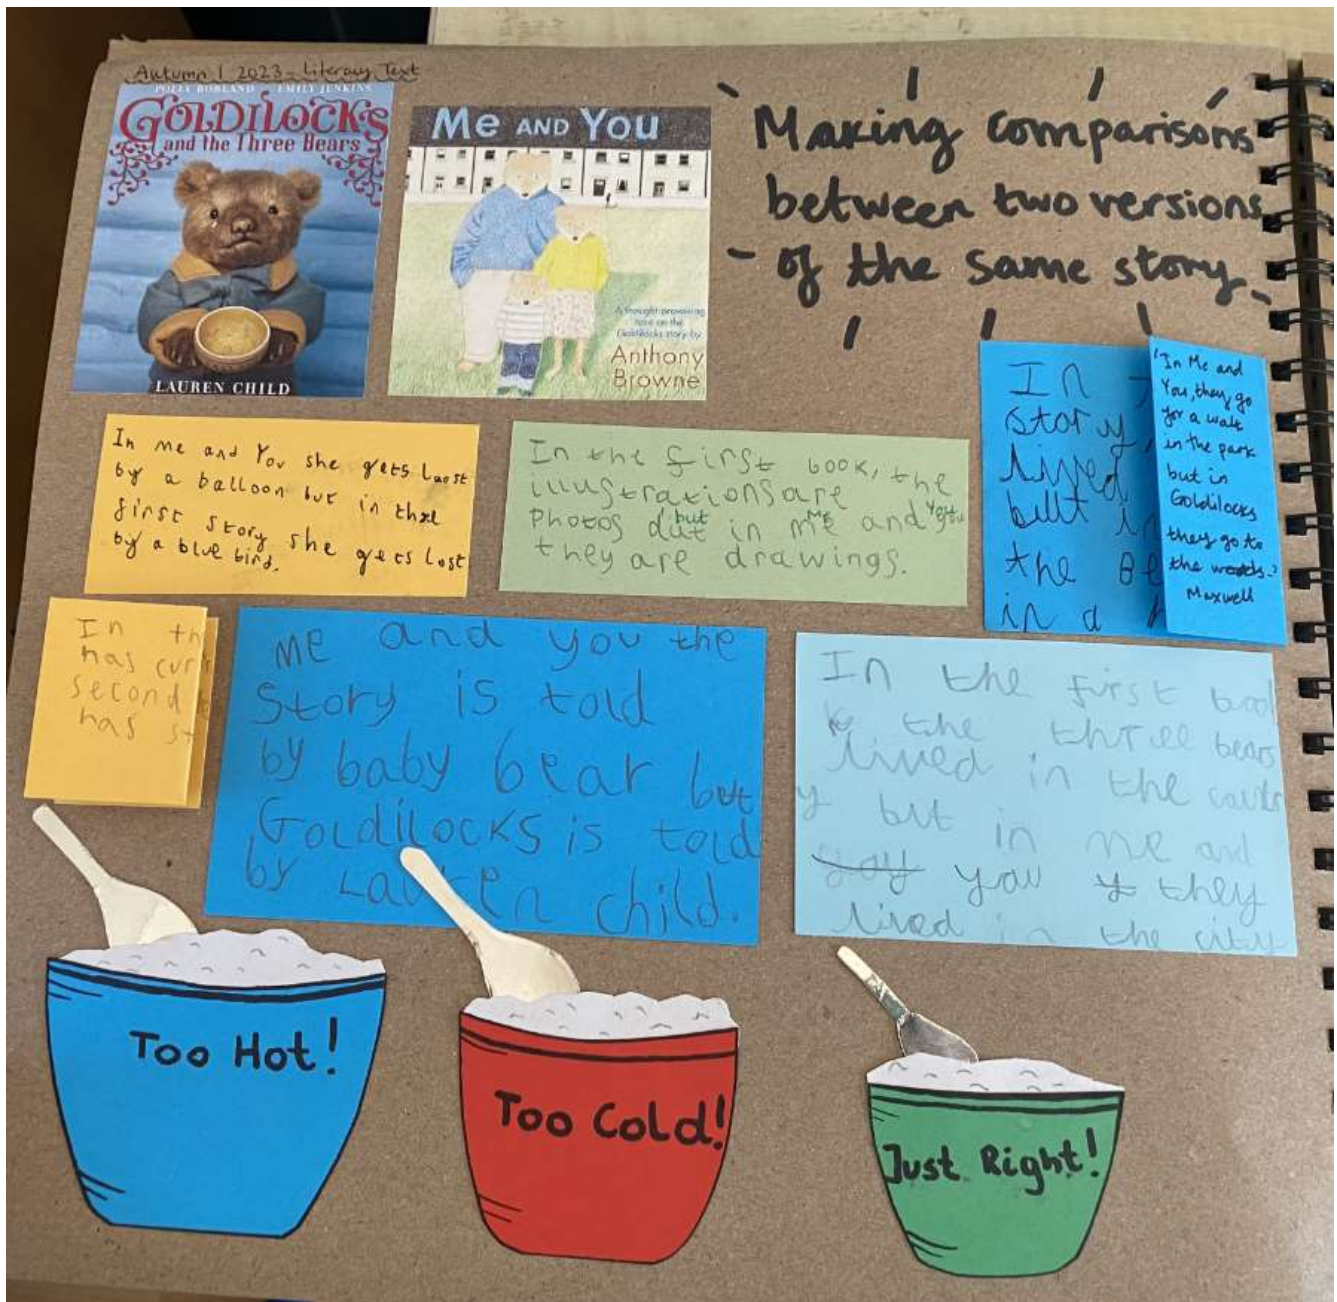 Autumn 1 2023 - Literacy Text
POLLY BORLAND EMILY JENKINS
GOLDILOCKS
and the Three Bears
LAUREN CHILD
ME AND YOU
A thought-provoking
take on the
Goldilocks story by
Anthony
Browne
Making comparisons
between two versions
of the same story
In me and You she gets lost
by a balloon but in the
first story she gets lost
by a blue bird.
In the first book, the
illustrations are
photos but in Me and You
they are drawings.
In
story,
lived
but in
the Be
in a
"In Me and
You, they go
for a walk
in the park
but in
Goldilocks
they go to
the woods."
Maxwell
In th
has cur
second
has st
me and you the
story is told
by baby bear but
Goldilocks is told
by Lauren child.
In the first boo
k the three bears
lived in the countr
y but in me and
you they
lived in the city
Too Hot!
Too Cold!
Just Right!